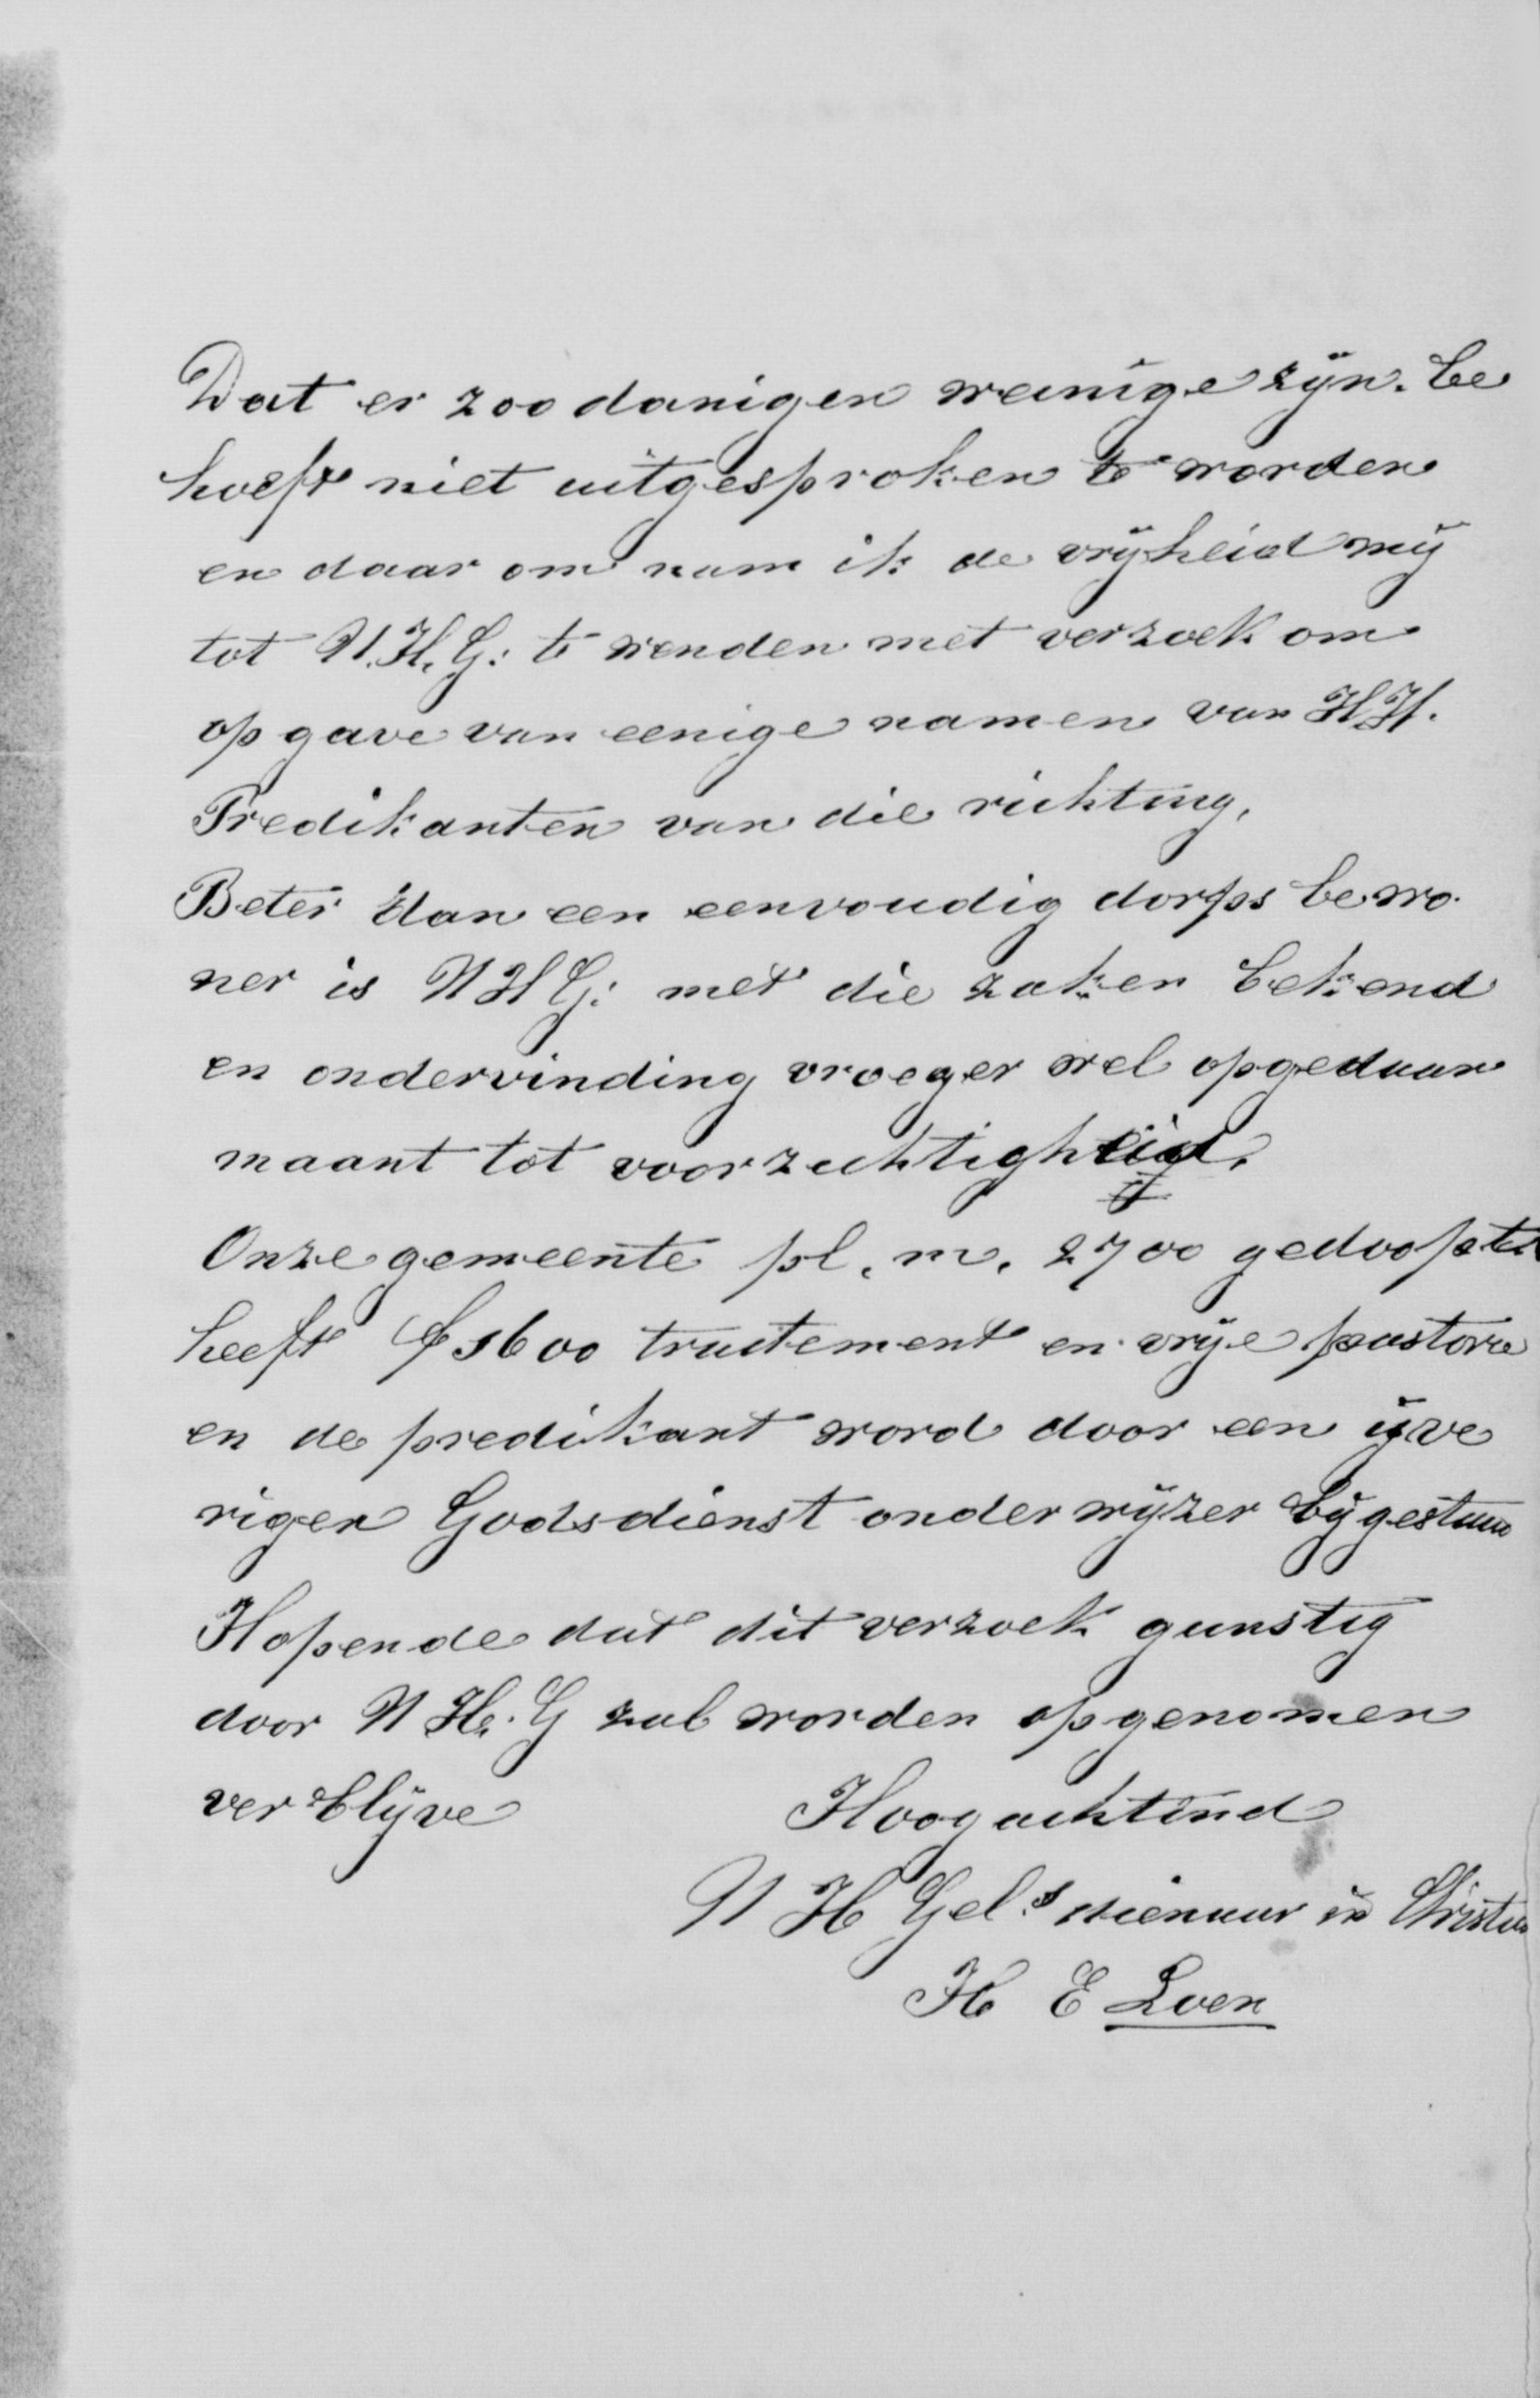 Dat er zoodanigen weinige zijn. be
hoeft niet uitgesproken te worden
en daar om nam ik de vrijheid mij
tot U.H.G: te wenden met verzoek om
op gave van eenige namen van H.H.
Predikanten van die richting,
Beter dan een eenvoudig dorps bewo
ner is U H G: met die zaken bekend
en ondervinding vroeger wel opgedaan
maant tot voorzichtigheid.
Onze gemeente pl. m. 2700 gedoopten
heeft ƒ 1600 tractement en vrije pastorie
en de predikant word door een ijve
rigen Godsdienst onderwijzer bijgestaan
Hopende dat dit verzoek gunstig
door U H. G zal worden opgenomen
ver blijve Hoogachtend
U H Gel.s dienaar in Christus
H E Loen